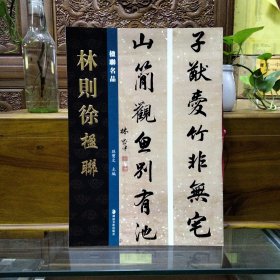 楹聯名品
林則徐楹聯
子猷愛竹非無宅
山簡觀魚別有池
林則徐